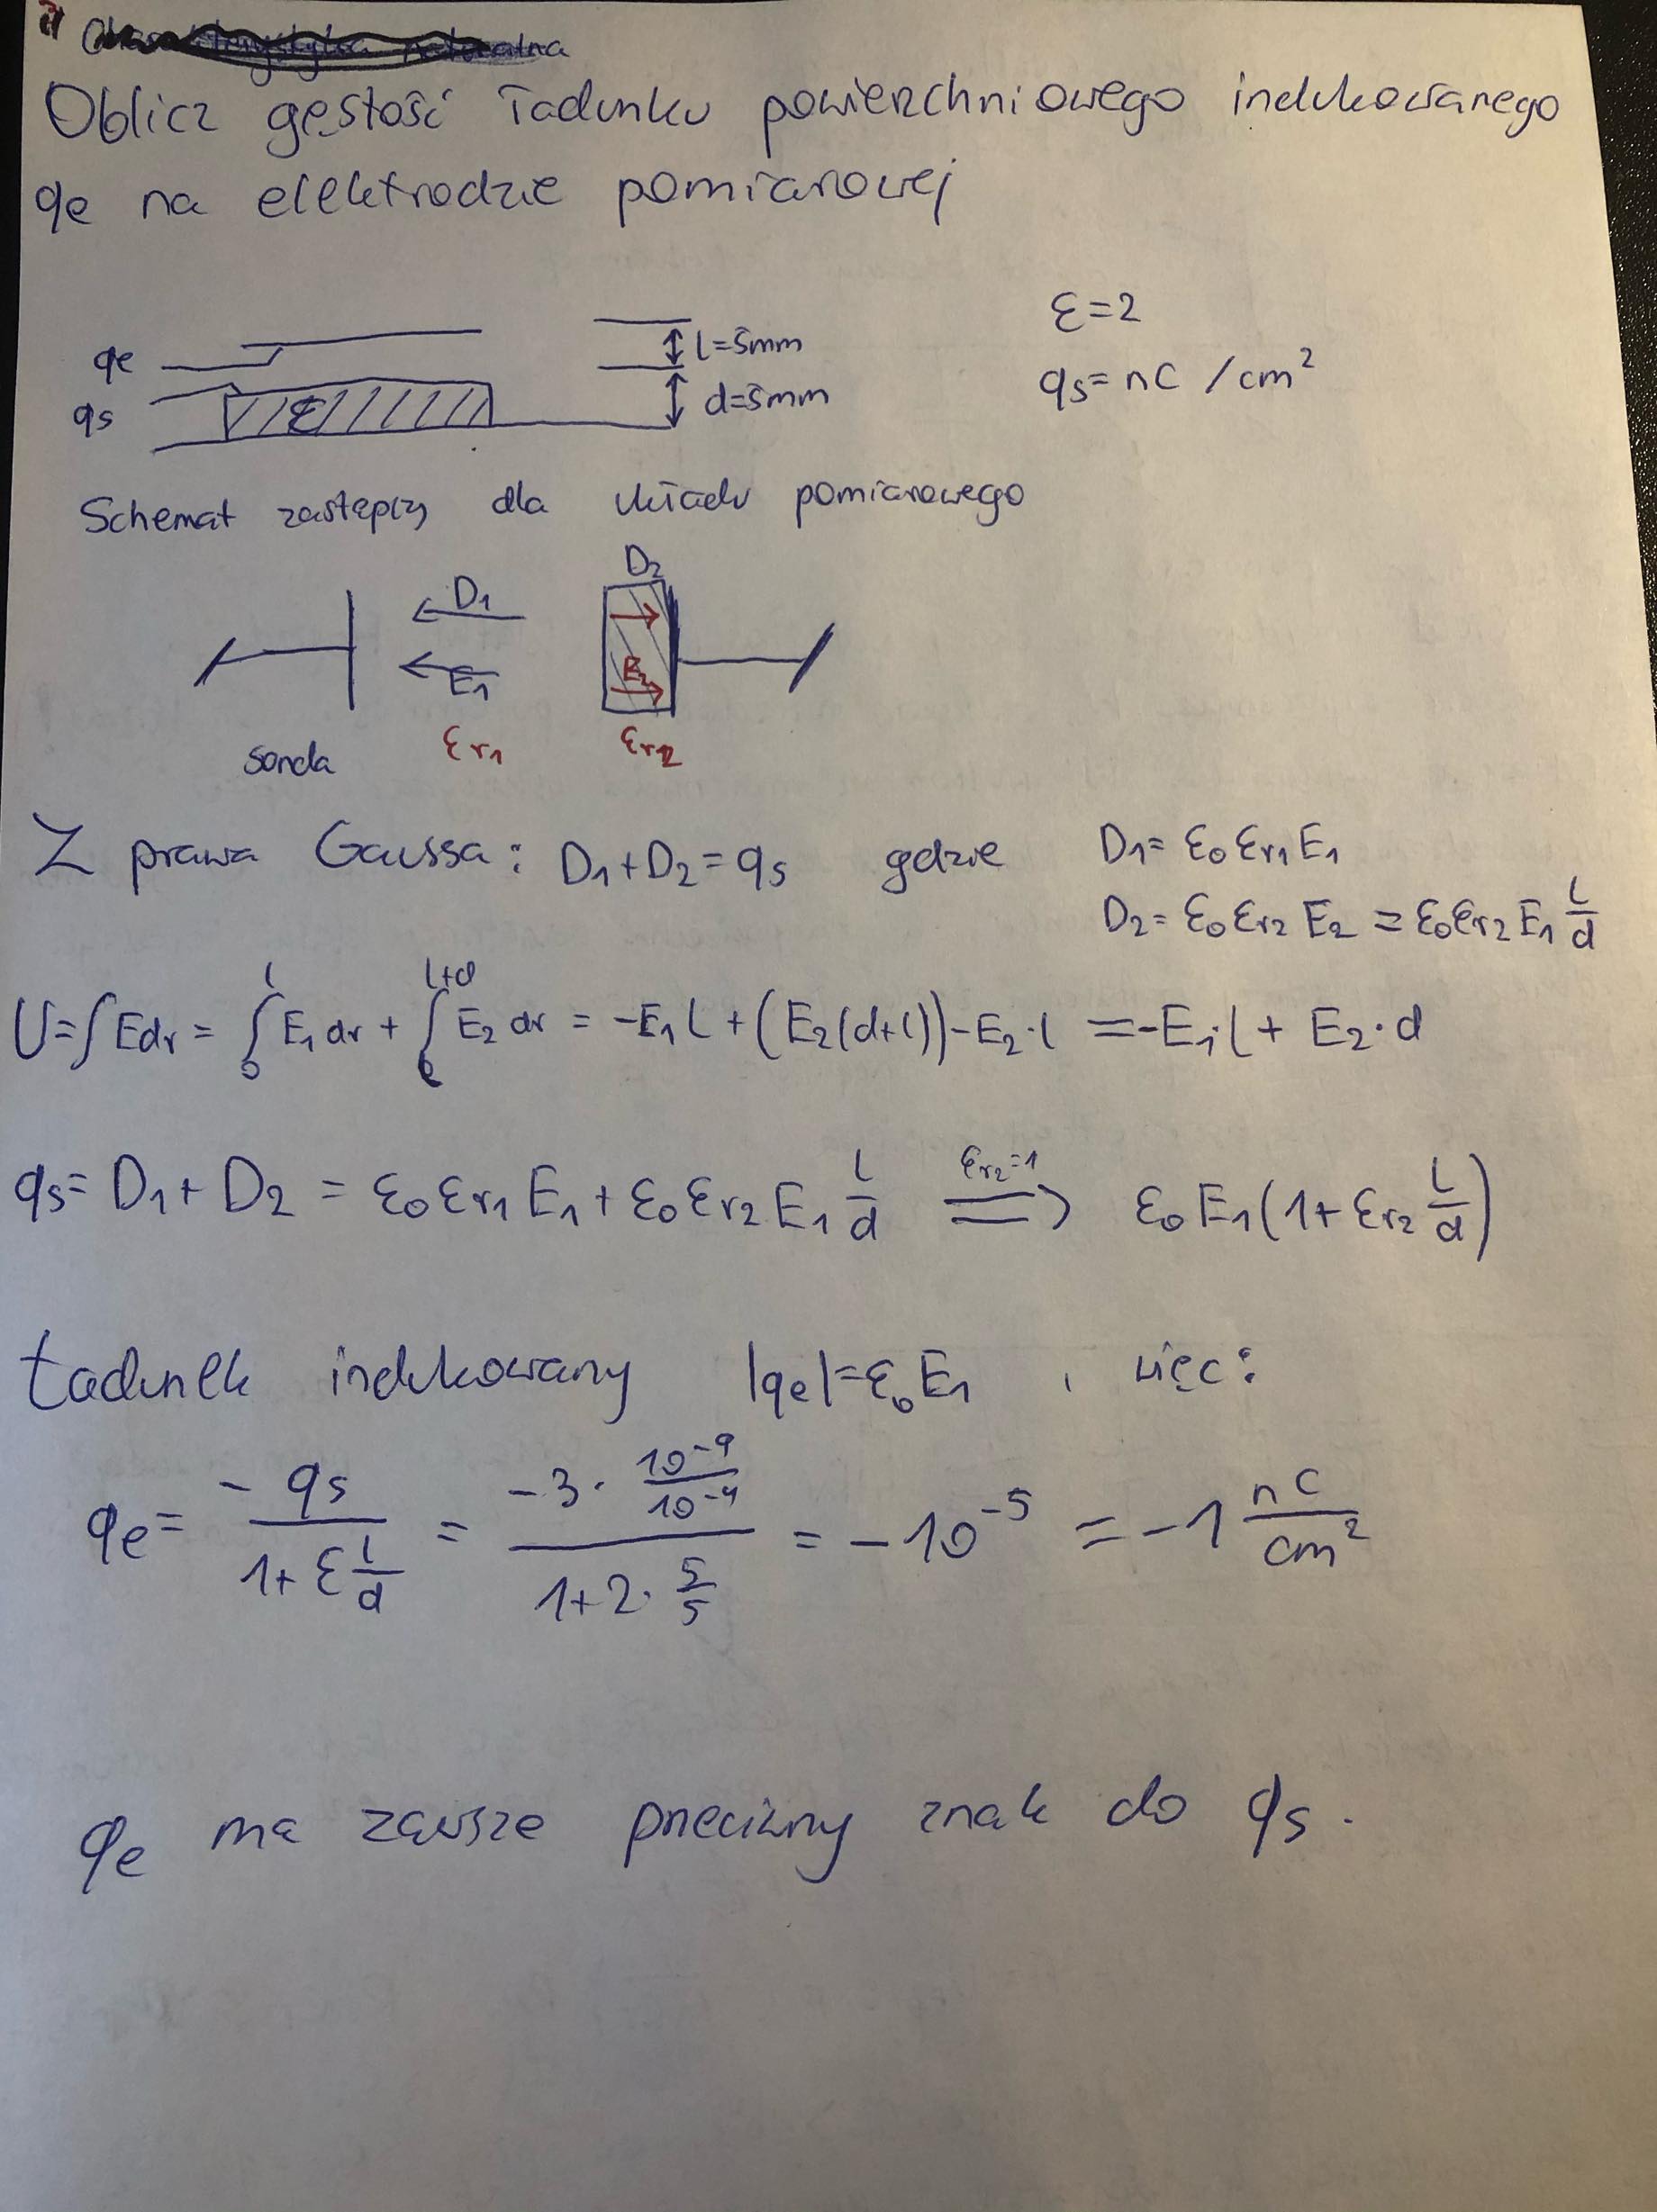 Oblicz gęstość ładunku powierzchniowego indukowanego
qe na elektrodzie pomiarowej
ε=2
qe
l=5mm
qs = nC /cm²
qs
ε
d=5mm
Schemat zastępczy dla układu pomiarowego
D₂
D₁
E₁
E₂
sonda
εr₁
εr₂
Z prawa Gaussa: D₁+D₂=qs gdzie D₁= ε₀ εr₁ E₁
D₂= ε₀ εr₂ E₂ = ε₀ εr₂ E₁ l/d
U=∫Edr = ∫₀^l E₁ dr + ∫_l^(l+d) E₂ dr = -E₁ l + (E₂(d+l)) - E₂·l = -E₁·l + E₂·d
qs= D₁+ D₂ = ε₀ εr₁ E₁ + ε₀ εr₂ E₁ l/d =(εr₂=1)=> ε₀ E₁(1+ εr₂ l/d)
Ładunek indukowany |qe|=ε₀E₁ , więc:
qe= -qs/(1+ ε l/d) = (-3· 10⁻⁹/10⁻⁴)/(1+2· 5/5) = -10⁻⁵ = -1 nC/cm²
qe ma zawsze przeciwny znak do qs.